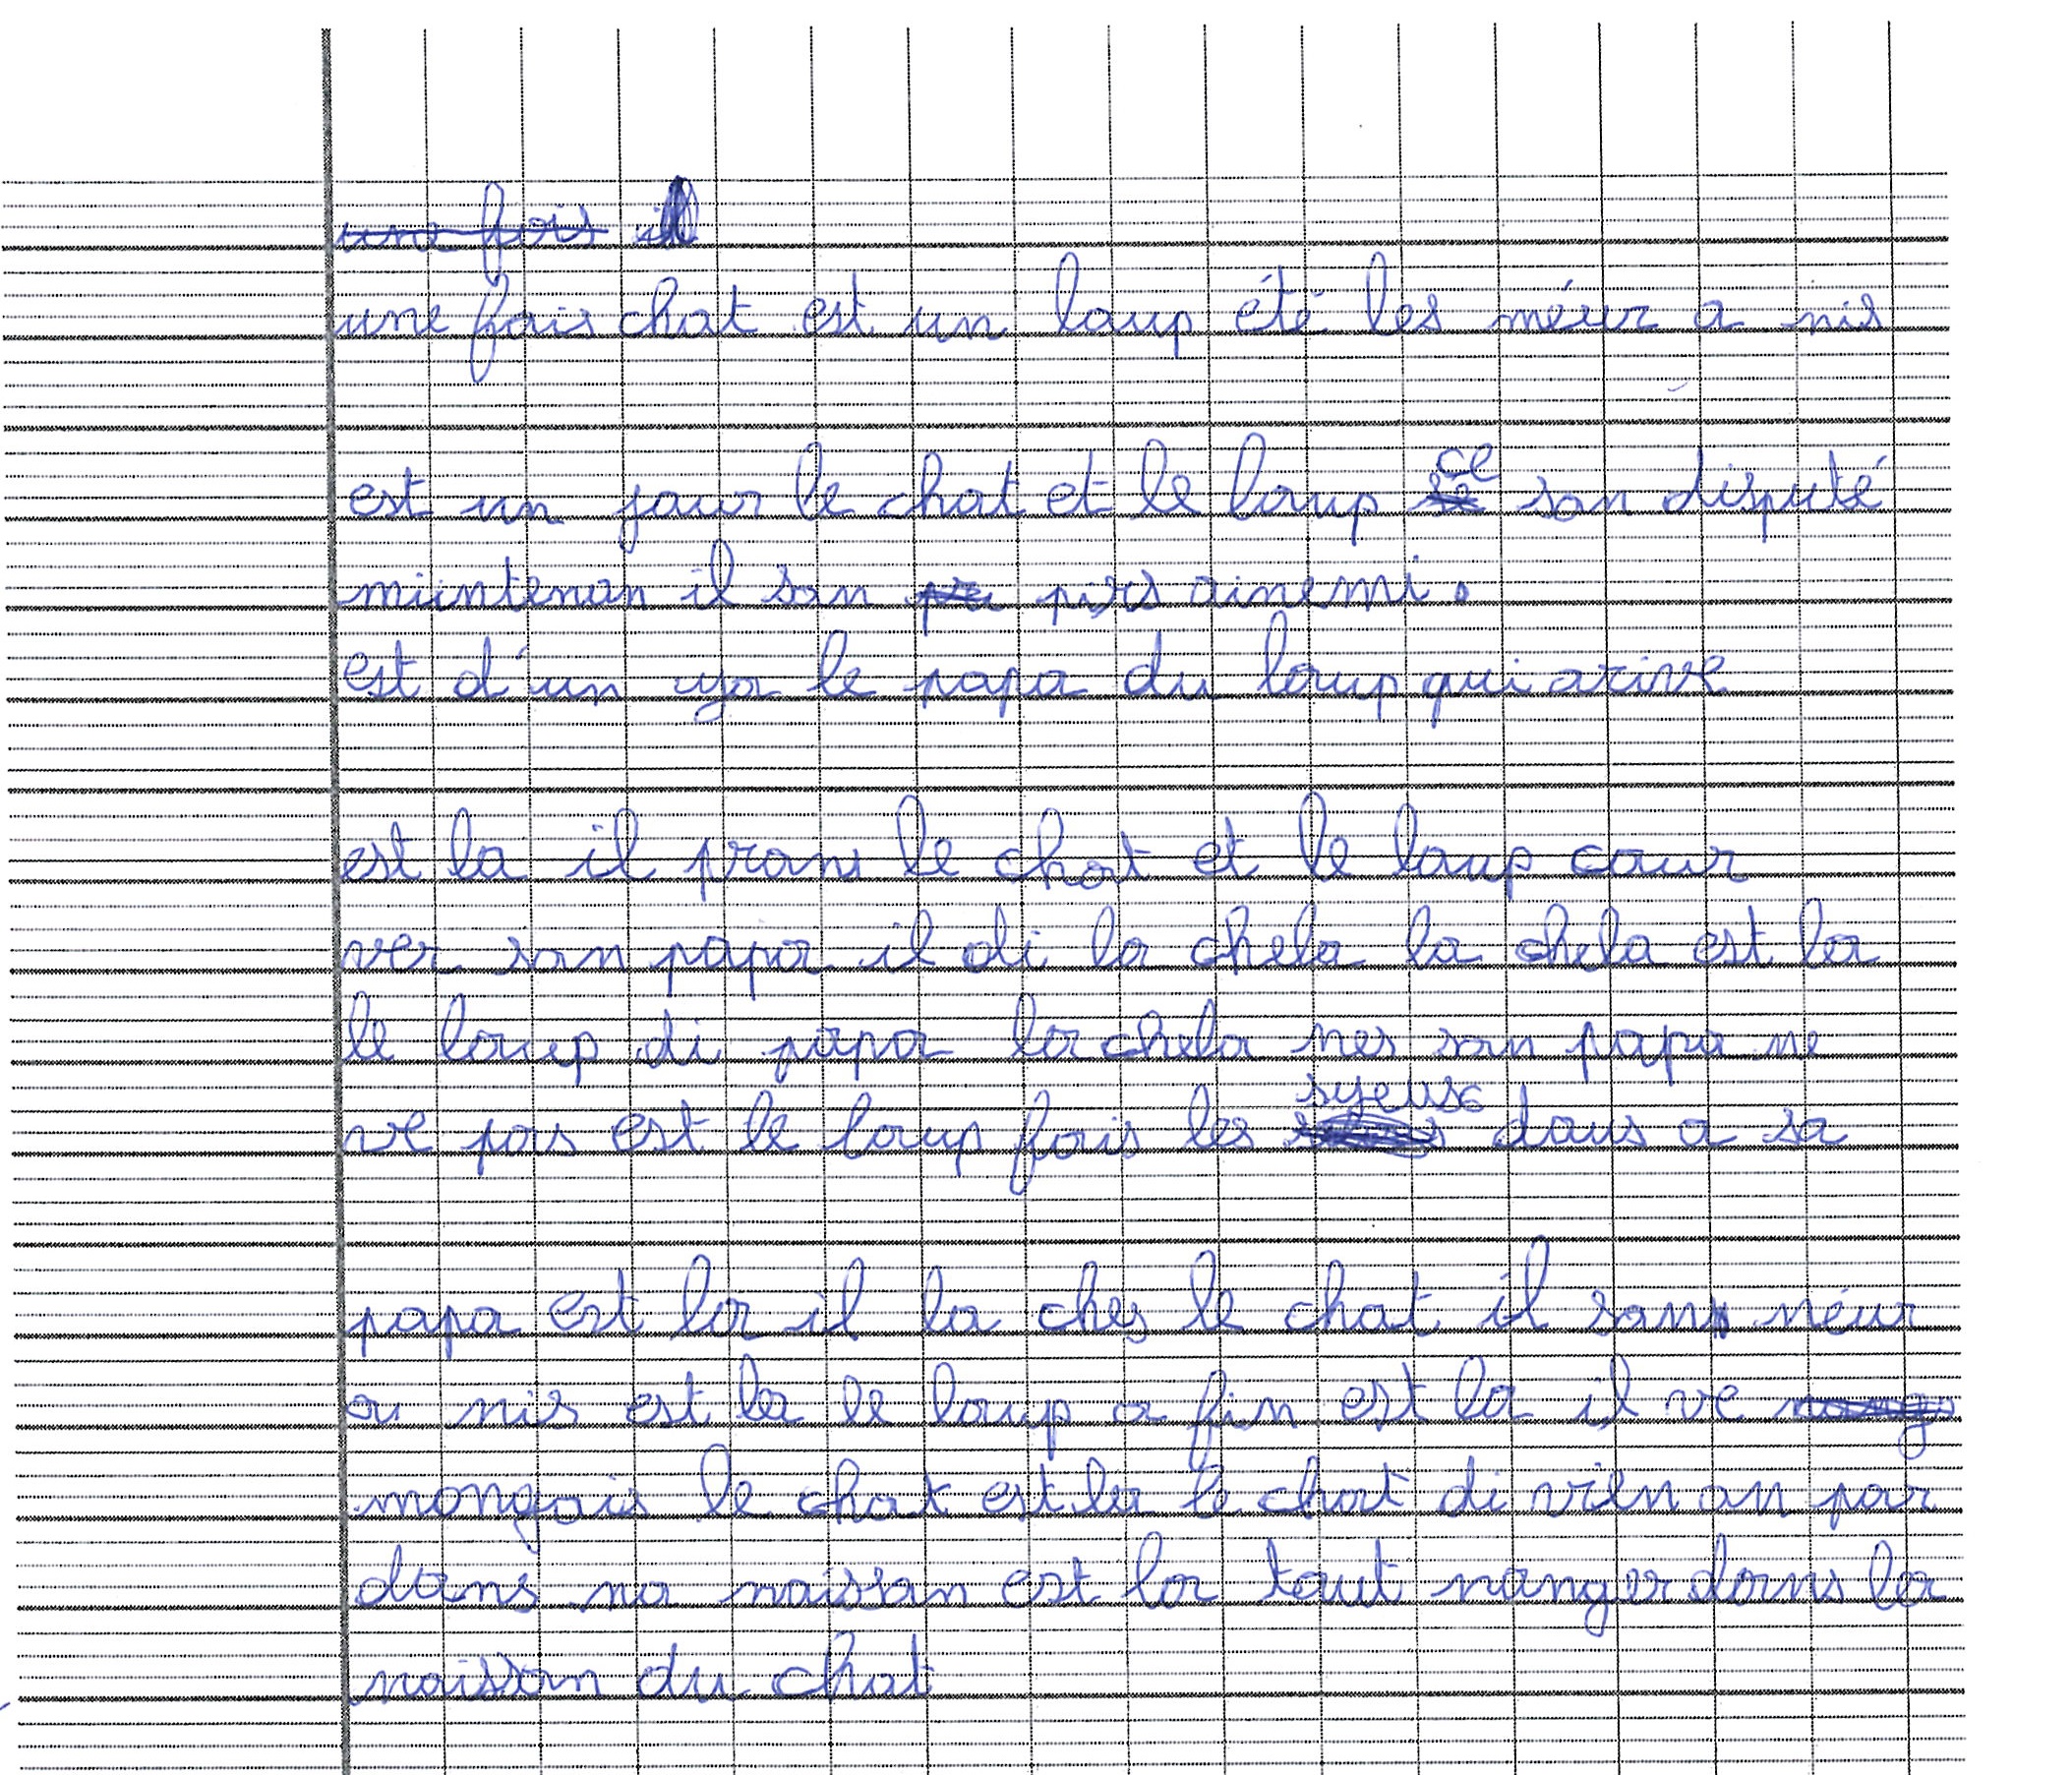 une fois il
une fois chat est un loup été les méur a mis
est un jour le chat et le loup ce son disputé
miintenan il son pirs ainemi.
est d'un ya le papa du loup qui arive
est la il prans le chat et le loup cour
ver son papa il di la chela la chela est la
le loup di papa la chela mes son papa ne
ve pas est le loup fois les syeux dous a sa
papa est la il la ches le chat il sont méur
a mis est la le loup a fin est la il ve
mongais le chat est la le chat di vien an par
dans ma maisson est la tout manger dans la
maisson du chat